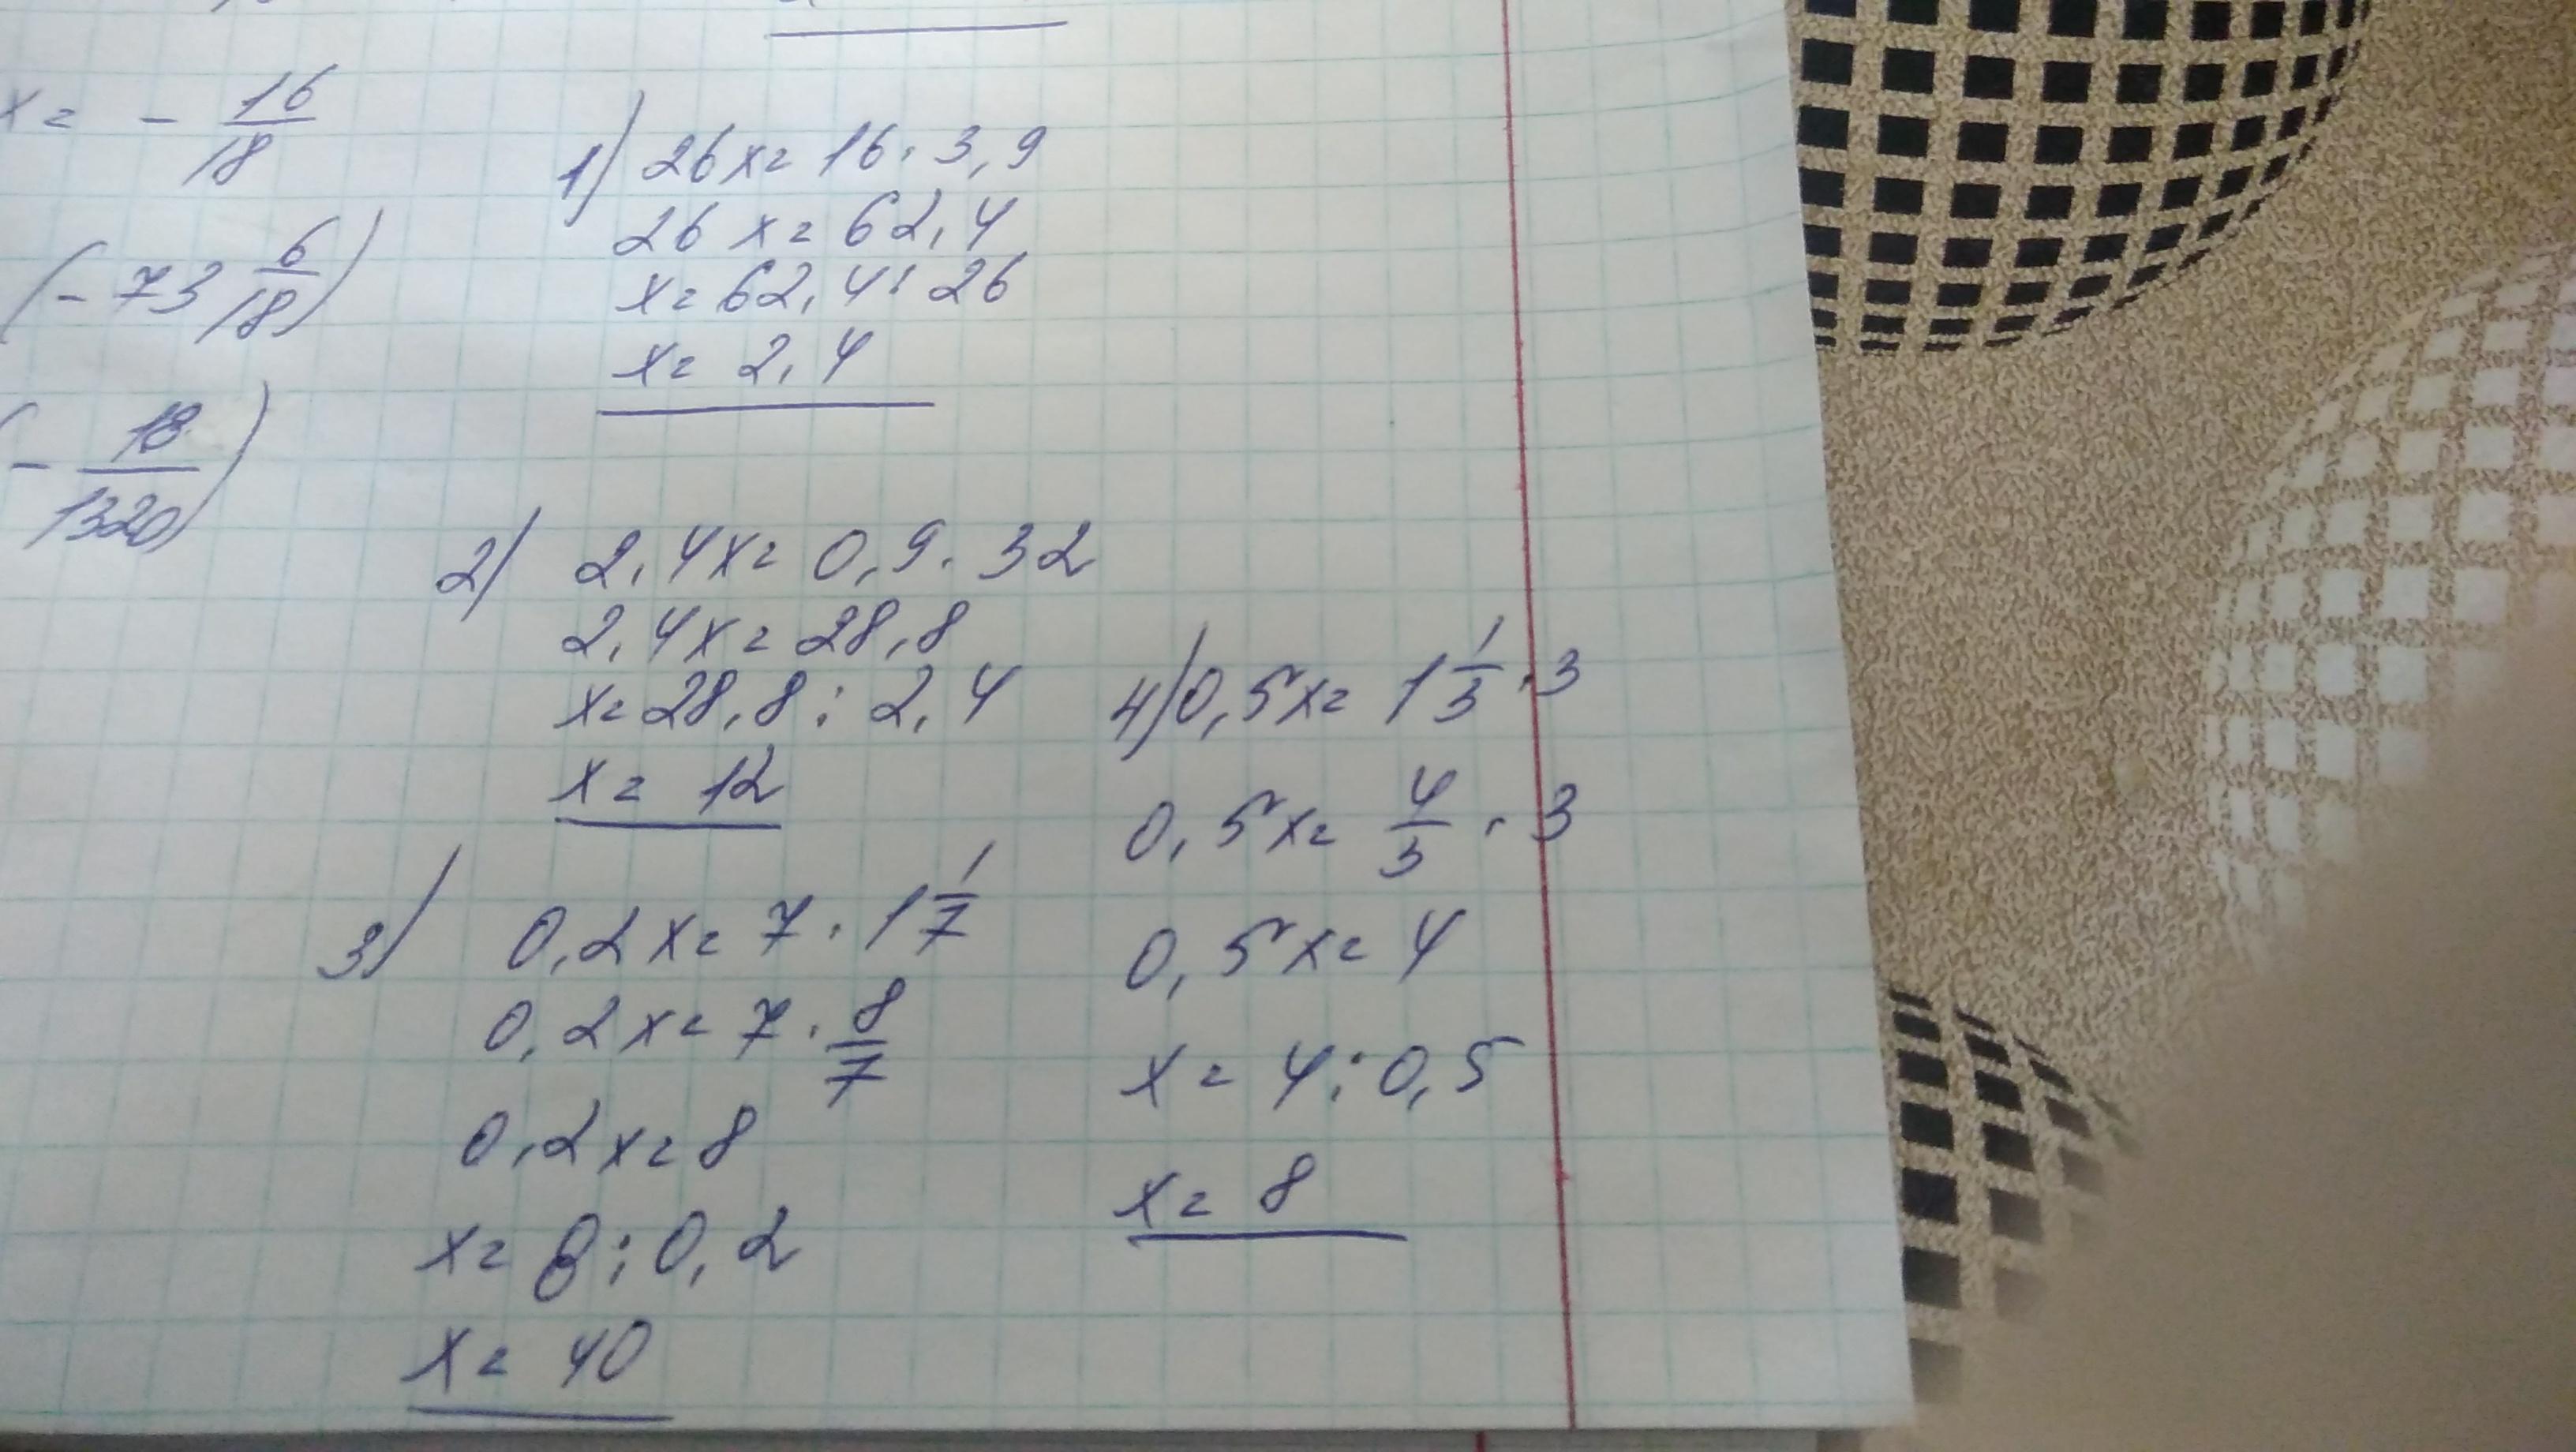 x = - 16/18
(- 73 6/18)
(- 18/1320)
1) 26x = 16 · 3,9
26x = 62,4
x = 62,4 : 26
x = 2,4
2) 2,4x = 0,9 · 32
2,4x = 28,8
x = 28,8 : 2,4
x = 12
3) 0,2x = 7 · 1 1/7
0,2x = 7 · 8/7
0,2x = 8
x = 8 : 0,2
x = 40
4) 0,5x = 1 1/3 · 3
0,5x = 4/3 · 3
0,5x = 4
x = 4 : 0,5
x = 8